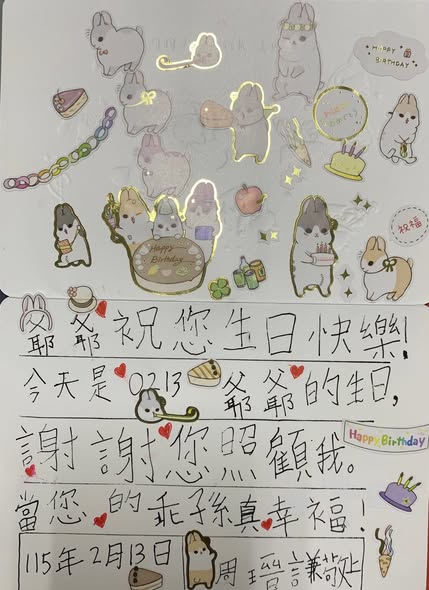 HAPPY
BIRTHDAY
祝福
Happy
Birthday
爺爺祝您生日快樂!
今天是0213爺爺的生日,
謝謝您照顧我。
Happy Birthday
當您的乖孫真幸福!
115年2月13日
周瑨謙敬上